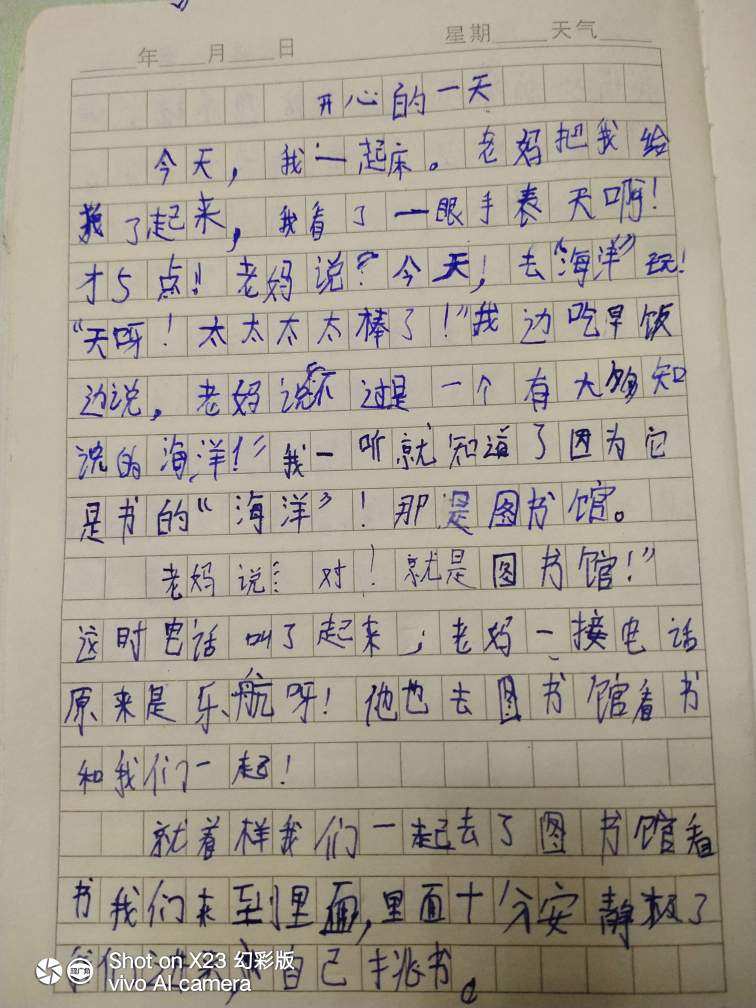 年 月 日 星期 天气
开心的一天
今天，我一起床。老妈把我给
我了起来，我看了一眼手表天啊！
才5点！老妈说：“今天！去“海洋”玩！
“天呀！太太太太棒了！”我边吃早饭
边说，老妈说：“不过是一个有大够知
识的海洋！”我一听就知道了因为它
是书的“海洋”！那是图书馆。
老妈说：“对！就是图书馆！”
这时电话叫了起来，老妈一接电话
原来是乐航呀！他也去图书馆看书
和我们一起！
就着样我们一起去了图书馆看
书我们来到里面，里面十分安静极了
我们 自己挑书。
Shot on X23 幻彩版
vivo AI camera